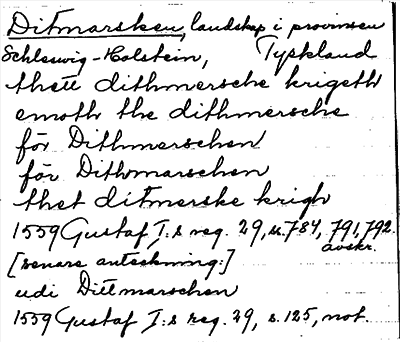 Ditmarsken, landskap i provinsen
Schleswig-Holstein, Tyskland
thett dithmersche krigeth
emoth the dithmersche
för Dithmerschen
för Dithomarschen
thet ditmerske krigh
1559 Gustaf I:s reg. 29, s. 784, 791, 792.
avskr.
[senare anteckning:]
udi Dittmarschen
1559 Gustaf I:s reg. 29, s. 125, not.